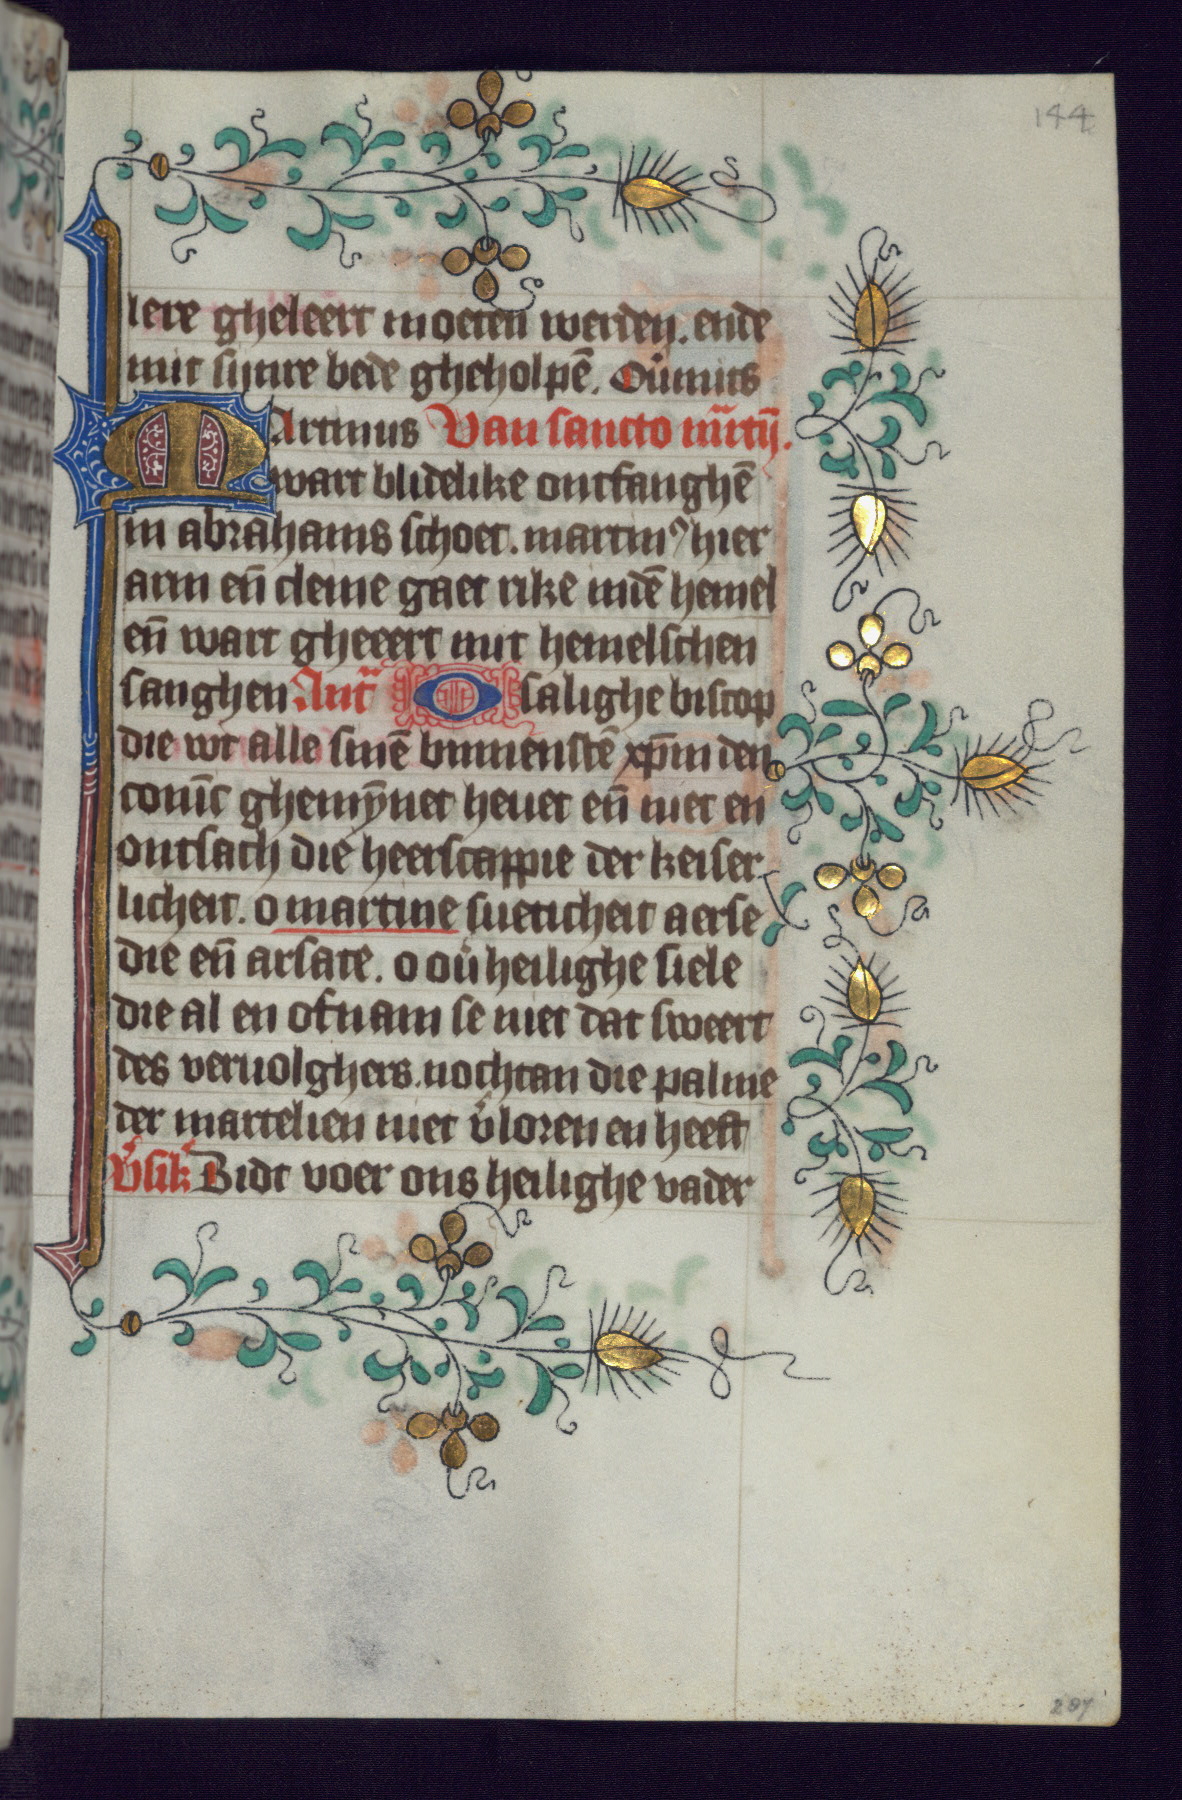 144
lere gheleert moeten werden. ende
mit sijnre bede gheholpē. Oũmits
MArtinus Van sancto m̄rtij.
wart blidelike ontfanghē
in abrahams schoet. martinꝰ hier
arm eñ cleine gaet rike indē hemel
eñ wart gheeert mit hemelschen
sanghen Ant̄ O salighe biscop
die wt alle sinē binnenstē xp̄m den
coninc ghemȳnet heuet eñ niet en
ontsach die heerscappie der keiser
licheit. o martine sueticheit aerse
die eñ arsate. o oũ heilighe siele
die al en ofnam se niet dat sweert
des veruolghers. nochtan die palme
der martelien niet v̉loren en heeft
V̉sik̉ Bidt voer ons heilighe vader
287